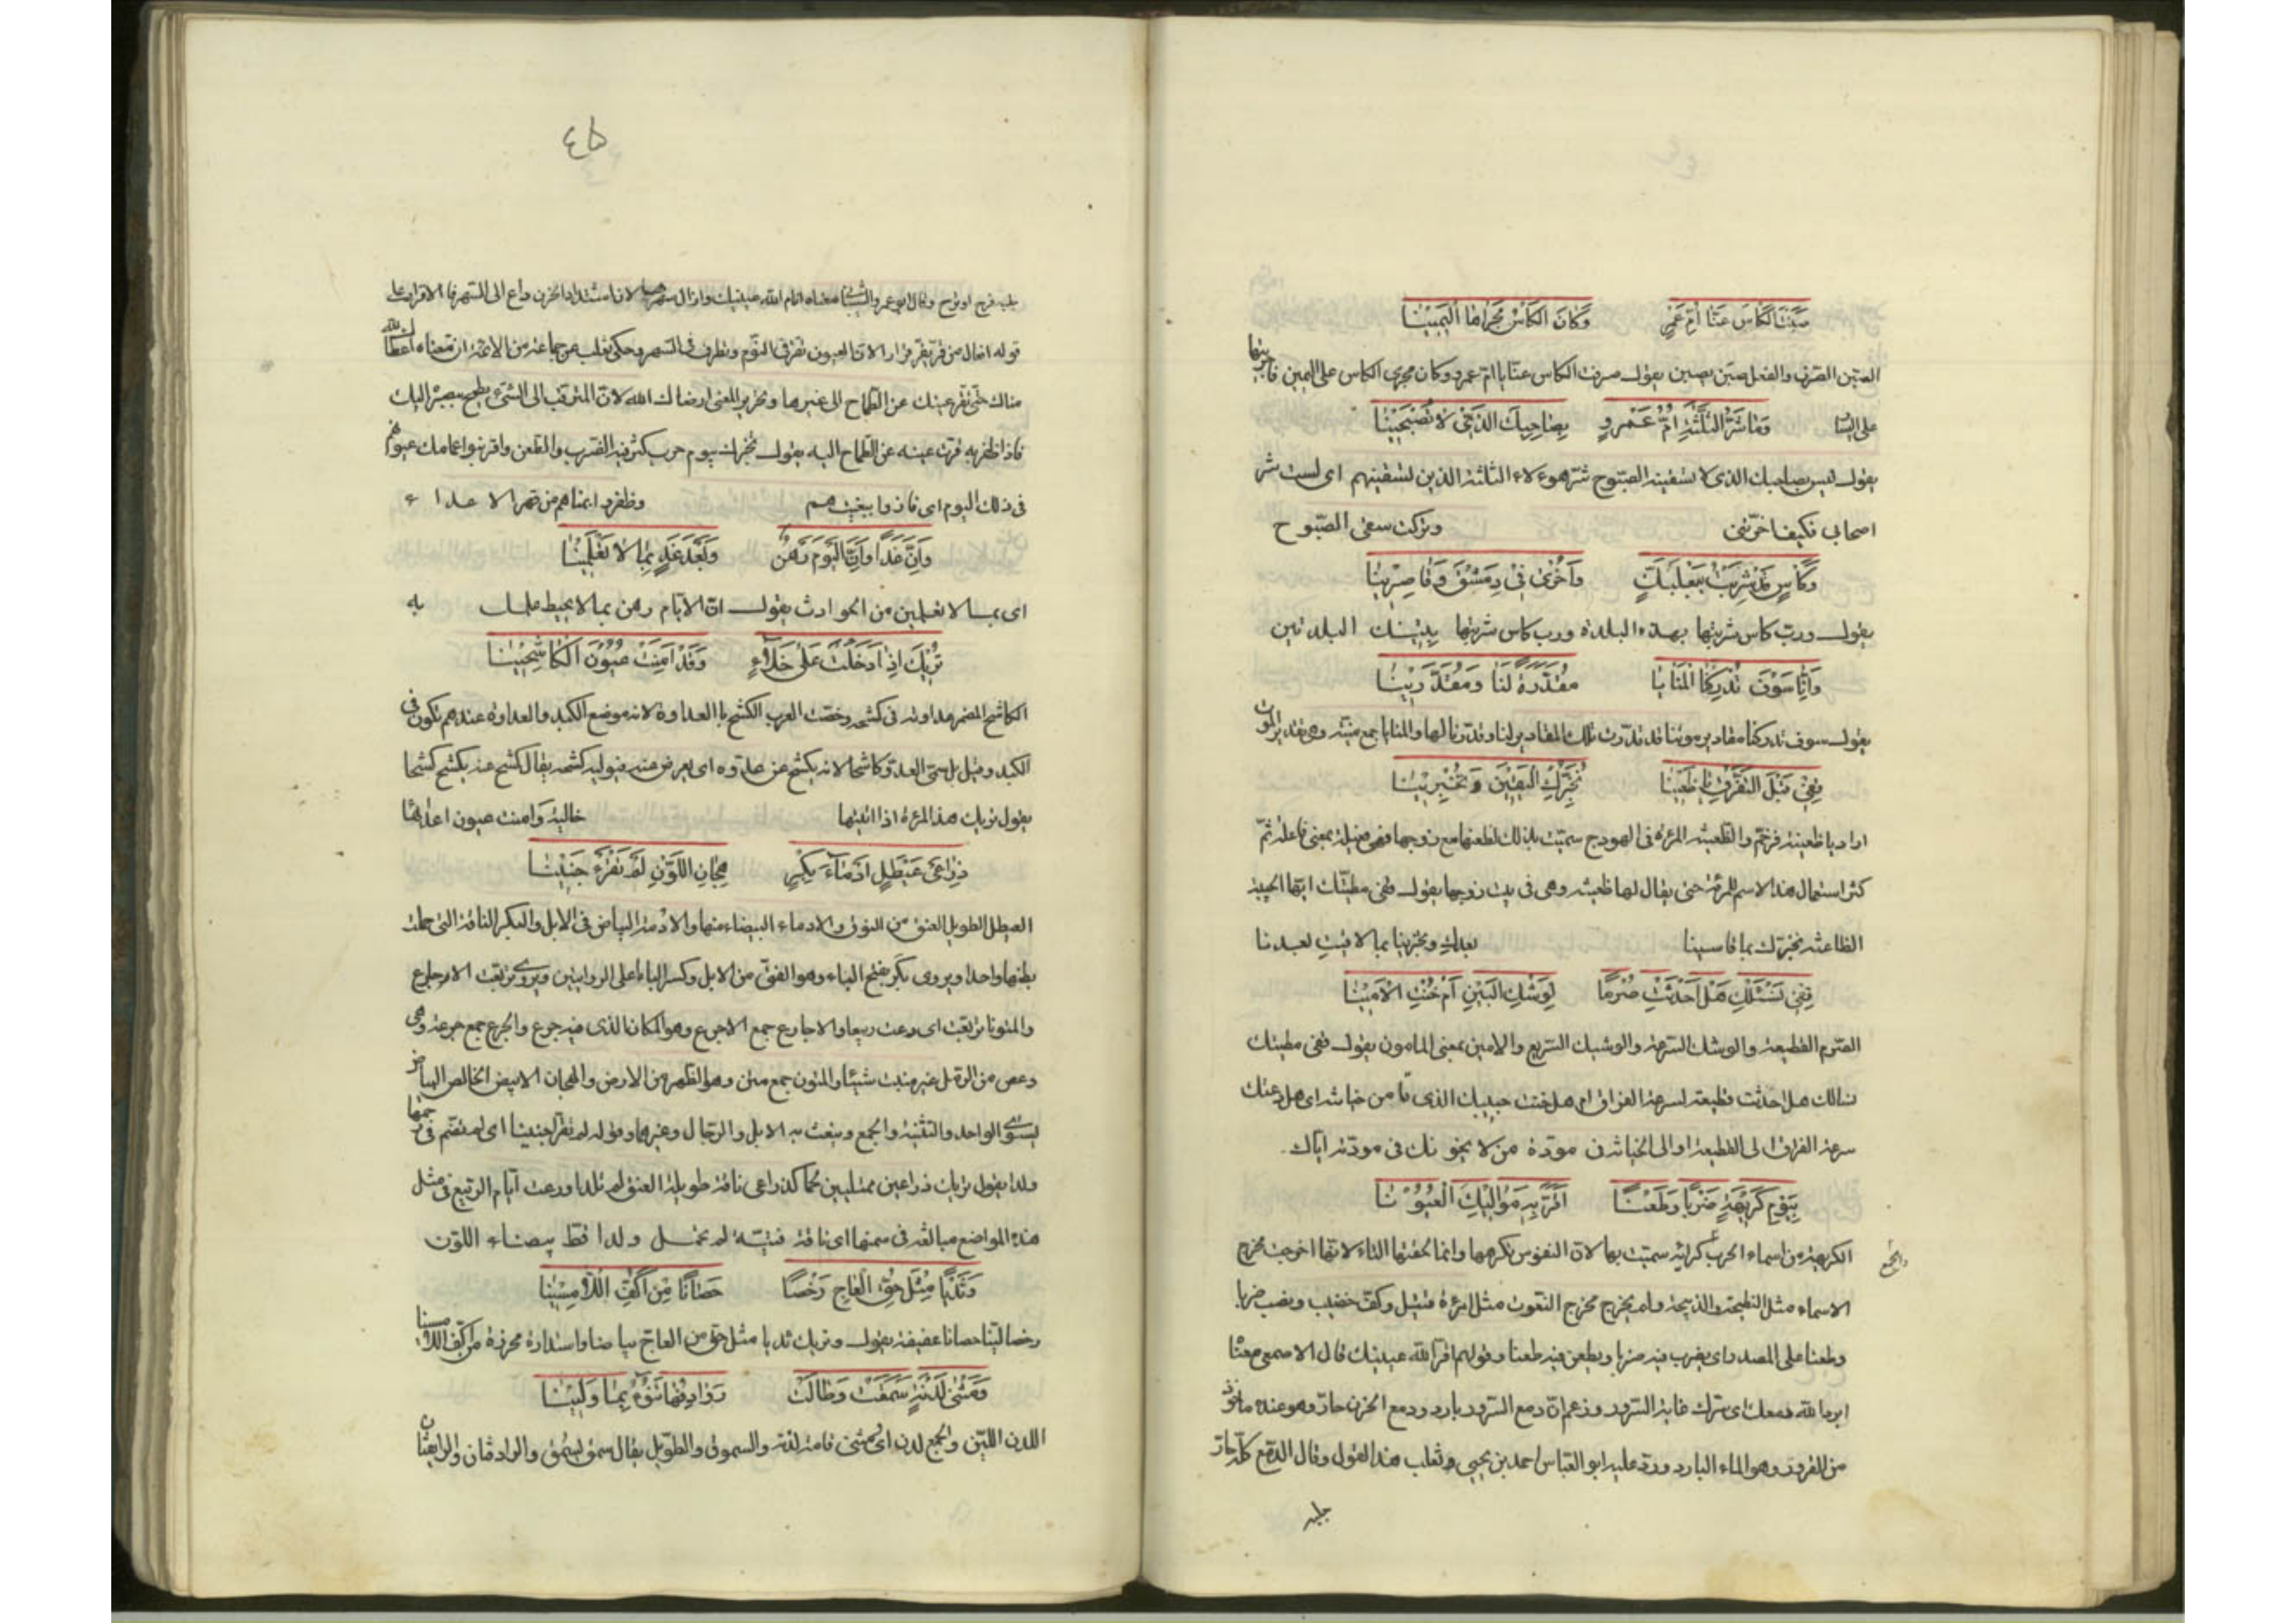 صبنت الكاس عنا ام عمرو وكان الكاس مجراها اليمينا
الصبن الصرف والفعل صبن يصبن يقول صرفت الكاس عنا يا ام عمرو وكان مجرى الكاس على اليمين فاجريتها
على اليسار
وما شر الثلثة ام عمرو بصاحبك الذى لا تصبحينا
يقول ليس بصاحبك الذى لا تسقينه الصبوح شر هوءلاء الثلثة الذين تسقينهم اى لست شر
اصحابى فكيف اخرتنى وتركت سقى الصبوح
وكاس قد شربت ببعلبك واخرى فى دمشق وقاصرينا
يقول ورب كاس شربتها بهذه البلدة ورب كاس شربتها بتينك البلدتين
وانا سوف تدركنا المنايا مقدرة لنا ومقدرينا
يقول سوف تدركنا مقادير موتنا قد قدرت تلك المقادير لنا وقدرنا لها والمنايا جمع منية وهى تقدير الموت
قفى قبل التفرق يا ظعينا نخبرك اليقين وتخبرينا
اراد يا ظعينة فرخم والظعينة المرءة فى الهودج سميت بذلك لظعنها مع زوجها فهى فعيلة بمعنى فاعلة ثم
كثر استعمال هذا الاسم للمرءة حتى يقال لها ظعينة وهى فى بيت زوجها يقول قفى مطيتك ايتها الحبيبة
الظاعنة نخبرك بما قاسينا بعدك وتخبرينا بما لاقيت بعدنا
قفى نسئلك هل احدثت صرما لوشك البين ام خنت الامينا
الصرم القطيعة والوشك السرعة والوشيك السريع والامين بمعنى المامون يقول قفى مطيتك
نسالك هل احدثت قطيعة لسرعة الفراق ام هل خنت حبيبك الذى تامن خيانته اى هل دعتك
سرعة الفراق الى القطيعة او الى الخيانة فى مودة من لا يخونك فى مودته اياك
بيوم كريهة ضربا وطعنا اقر به مواليك العيونا
الكريهة من اسماء الحرب والجمع كرائه سميت بها لان النفوس تكرهها وانما لحقتها التاء لانها اخرجت مخرج
الاسماء مثل النطيحة والذبيحة ولم يخرج مخرج النعوت مثل امرءة قتيل وكف خضيب ونصب ضربا
وطعنا على المصدر اى يضرب فيه ضربا ويطعن فيه طعنا وقولهم اقر الله عينيك قال الاصمعى معناه
ابرد الله دمعك اى سرك غاية السرور وزعم ان دمع السرور بارد ودمع الحزن حار وهو عنده ماخوذ
من القرور وهو الماء البارد ورد عليه ابو العباس احمد بن يحيى ثعلب هذا القول وقال الدمع كله حار
جلبه
٤٥
جلبه فرح او ترح وقال ابو عمرو الشيبانى معناه انام الله عينيك وازال سهرهما لان استشداد الحزن داع الى السهر فالاقرار على
قوله افعال من قر يقر قرارا لان العيون تقر فى النوم وتطرف فى السهر وحكى ثعلب عن جماعة من الائمة ان معناه اعطاك الله
مناك حتى تقر عينك عن الطماح الى غيرها وتحرير المعنى ارضاك الله لان المترقب الى الشىء يطمح ببصره اليك
فاذا ظفر به قرت عينه عن الطماح اليه يقول نخبرك بيوم حرب كثر فيه الضرب والطعن واقر بنو اعمامك عيونهم
فى ذلك اليوم اى فازوا ببغيتهم وظفروا بمناهم من قهر الاعداء
وان غدا وان اليوم رهن وبعد غد بما لا تعلمينا
اى بما لا تعلمين من الحوادث يقول ان الايام رهن بما لا يحيط علمك به
تريك اذا دخلت على خلاء وقد امنت عيون الكاشحينا
الكاشح المضمر عداوته فى كشحه وخصت العرب الكشح بالعداوة لانه موضع الكبد والعداوة عندهم تكون فى
الكبد وقيل بل سمى العدو كاشحا لانه يكشح عن عدوه اى يعرض عنه فيوليه كشحه يقال كشح عنه يكشح كشحا
يقول تريك هذه المرءة اذا اتيتها خالية وامنت عيون اعدائها
ذراعى عيطل ادماء بكر هجان اللون لم تقرء جنينا
العيطل الطويل العنق من النوق والادماء البيضاء منها والادمة البياض فى الابل والبكر الناقة التى حملت
بطنها واحدا ويروى بكر بفتح الباء وهو الفتى من الابل وكسر الباء على الروايتين ويروى تربعت الاجارع
والمتونا تربعت اى رعت ربيعا والاجارع جمع الاجرع وهو المكان الذى فيه جرع والجرع جمع جرعة وهى
دعص من الرمل غير منبت شيئا والمتون جمع متن وهو الظهر من الارض والهجان الابيض الخالص البياض
يستوى الواحد والتثنية والجمع وينعت به الابل والرجال وغيرهما وقوله لم تقرا جنينا اى لم تضم فى رحمها
ولدا يقول تريك ذراعين ممتليين لحما كذراعى ناقة طويلة العنق لم تلد او رعت ايام الربيع فى مثل
هذه المواضع مبالغة فى سمنها اى ناقة فتية لم تحمل ولدا قط بيضاء اللون
وثديا مثل حق العاج رخصا حصانا من اكف اللامسينا
رخصا لينا حصانا عفيفة يقول وتريك ثديا مثل حق من العاج بياضا واستدارة محرزة من اكف اللامسينا
ومتنى لدنة سمقت وطالت روادفها تنوء بما ولينا
اللدن اللين والجمع لدن اى متنى قامة لدنة والسموق والطويل يقال سمق يسمق والرادفان والرانفتان